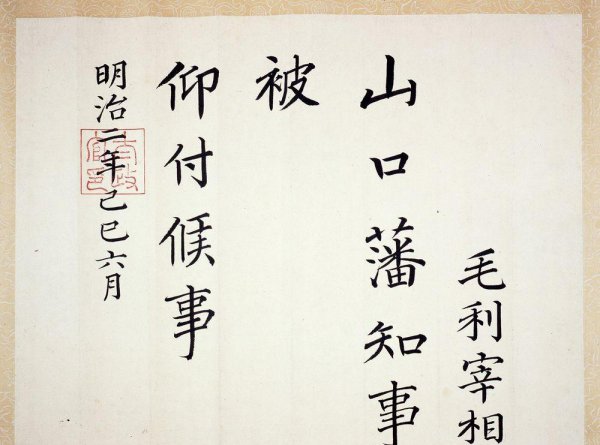 毛利宰相
山口藩知事
被
仰付候事
明治二年己巳六月